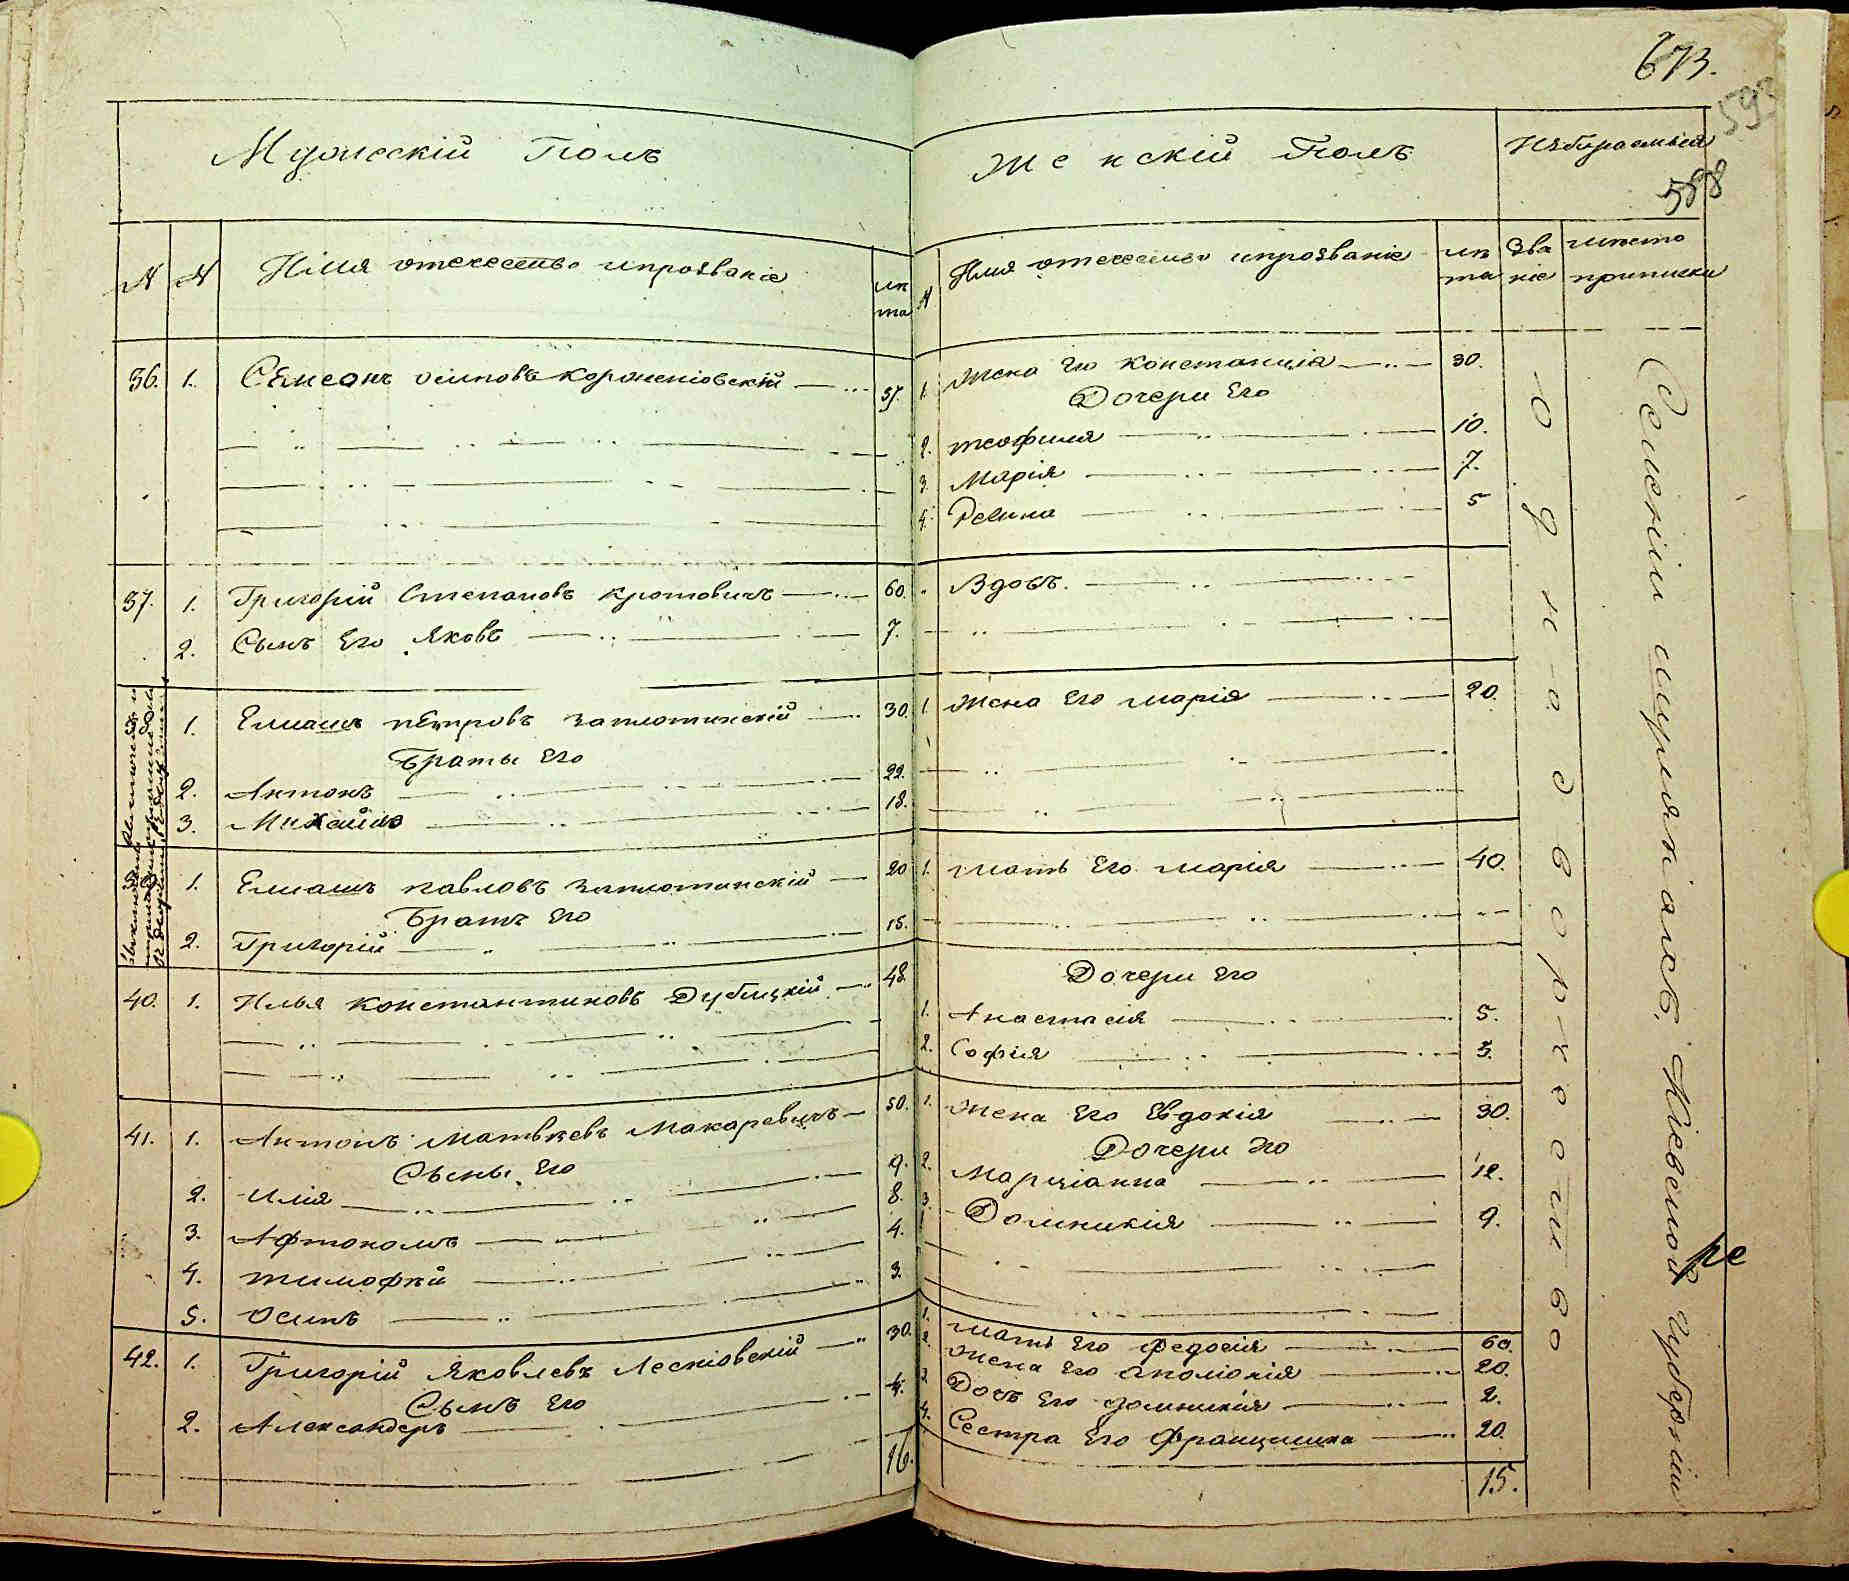 673.
593
588
Мужескій Полъ
Женскій Полъ
Избираемыя
№ № Имя отечество ипрозваніе лѣта
№ Имя отечество ипрозваніе лѣта Званіе место приписки
36. 1. Семеонъ осиповъ 37.
1. Жена Его констанція 30.
Дочери Его
2. теофиля 10.
3. Марія 7.
4. Регина 5
37. 1. Григорій Степановъ кротовичъ 60.
Вдовъ.
2. Сынъ Его Яковъ 7.
38 1. Елиашъ пЕтровъ заплотинскій 30.
1. Жена Его марія 20.
Браты Его
2. Антонъ 22.
3. Михайло 18.
39 1. Елиашъ павловъ заплотинскій 20
1. мать Его марія 40.
Братъ Его
2. Григорій 15.
40. 1. Илья константиновъ Дублицкій 48
Дочери Его
1. Анастасія 5.
2. Софія 3.
41. 1. Антонъ матвѣевъ Макаревичъ 50.
1. Жена Его Евдокія 30.
Сыны Его
Дочери Его
2. Илія 9.
2. Марціанна 12.
3. Афтономъ 8.
3. Домникія 9.
4. тимофѣй 4.
5. Осипъ 3.
42. 1. Григорій Яковлевъ Лескіовскій 30.
1. мать Его Федосія 60.
2. Жена Его аполіонія 20.
Сынъ Его
3. Дочь Его домникія 2.
2. Александеръ 4.
4. Сестра Его Францишка 20.
16.
15.
Однодворчество
Кіевской Губерніи
ре